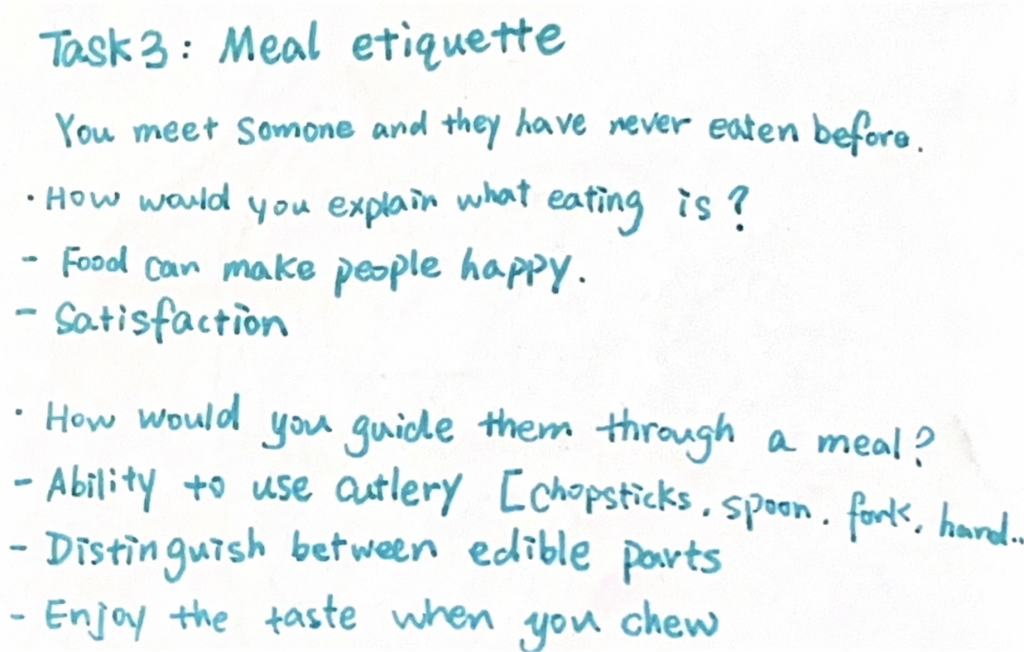 Task3: Meal etiquette
You meet somone and they have never eaten before.
· How would you explain what eating is?
- Food can make people happy.
- Satisfaction
· How would you guide them through a meal?
- Ability to use cutlery [chopsticks, spoon, fork, hand..
- Distinguish between edible parts
- Enjoy the taste when you chew